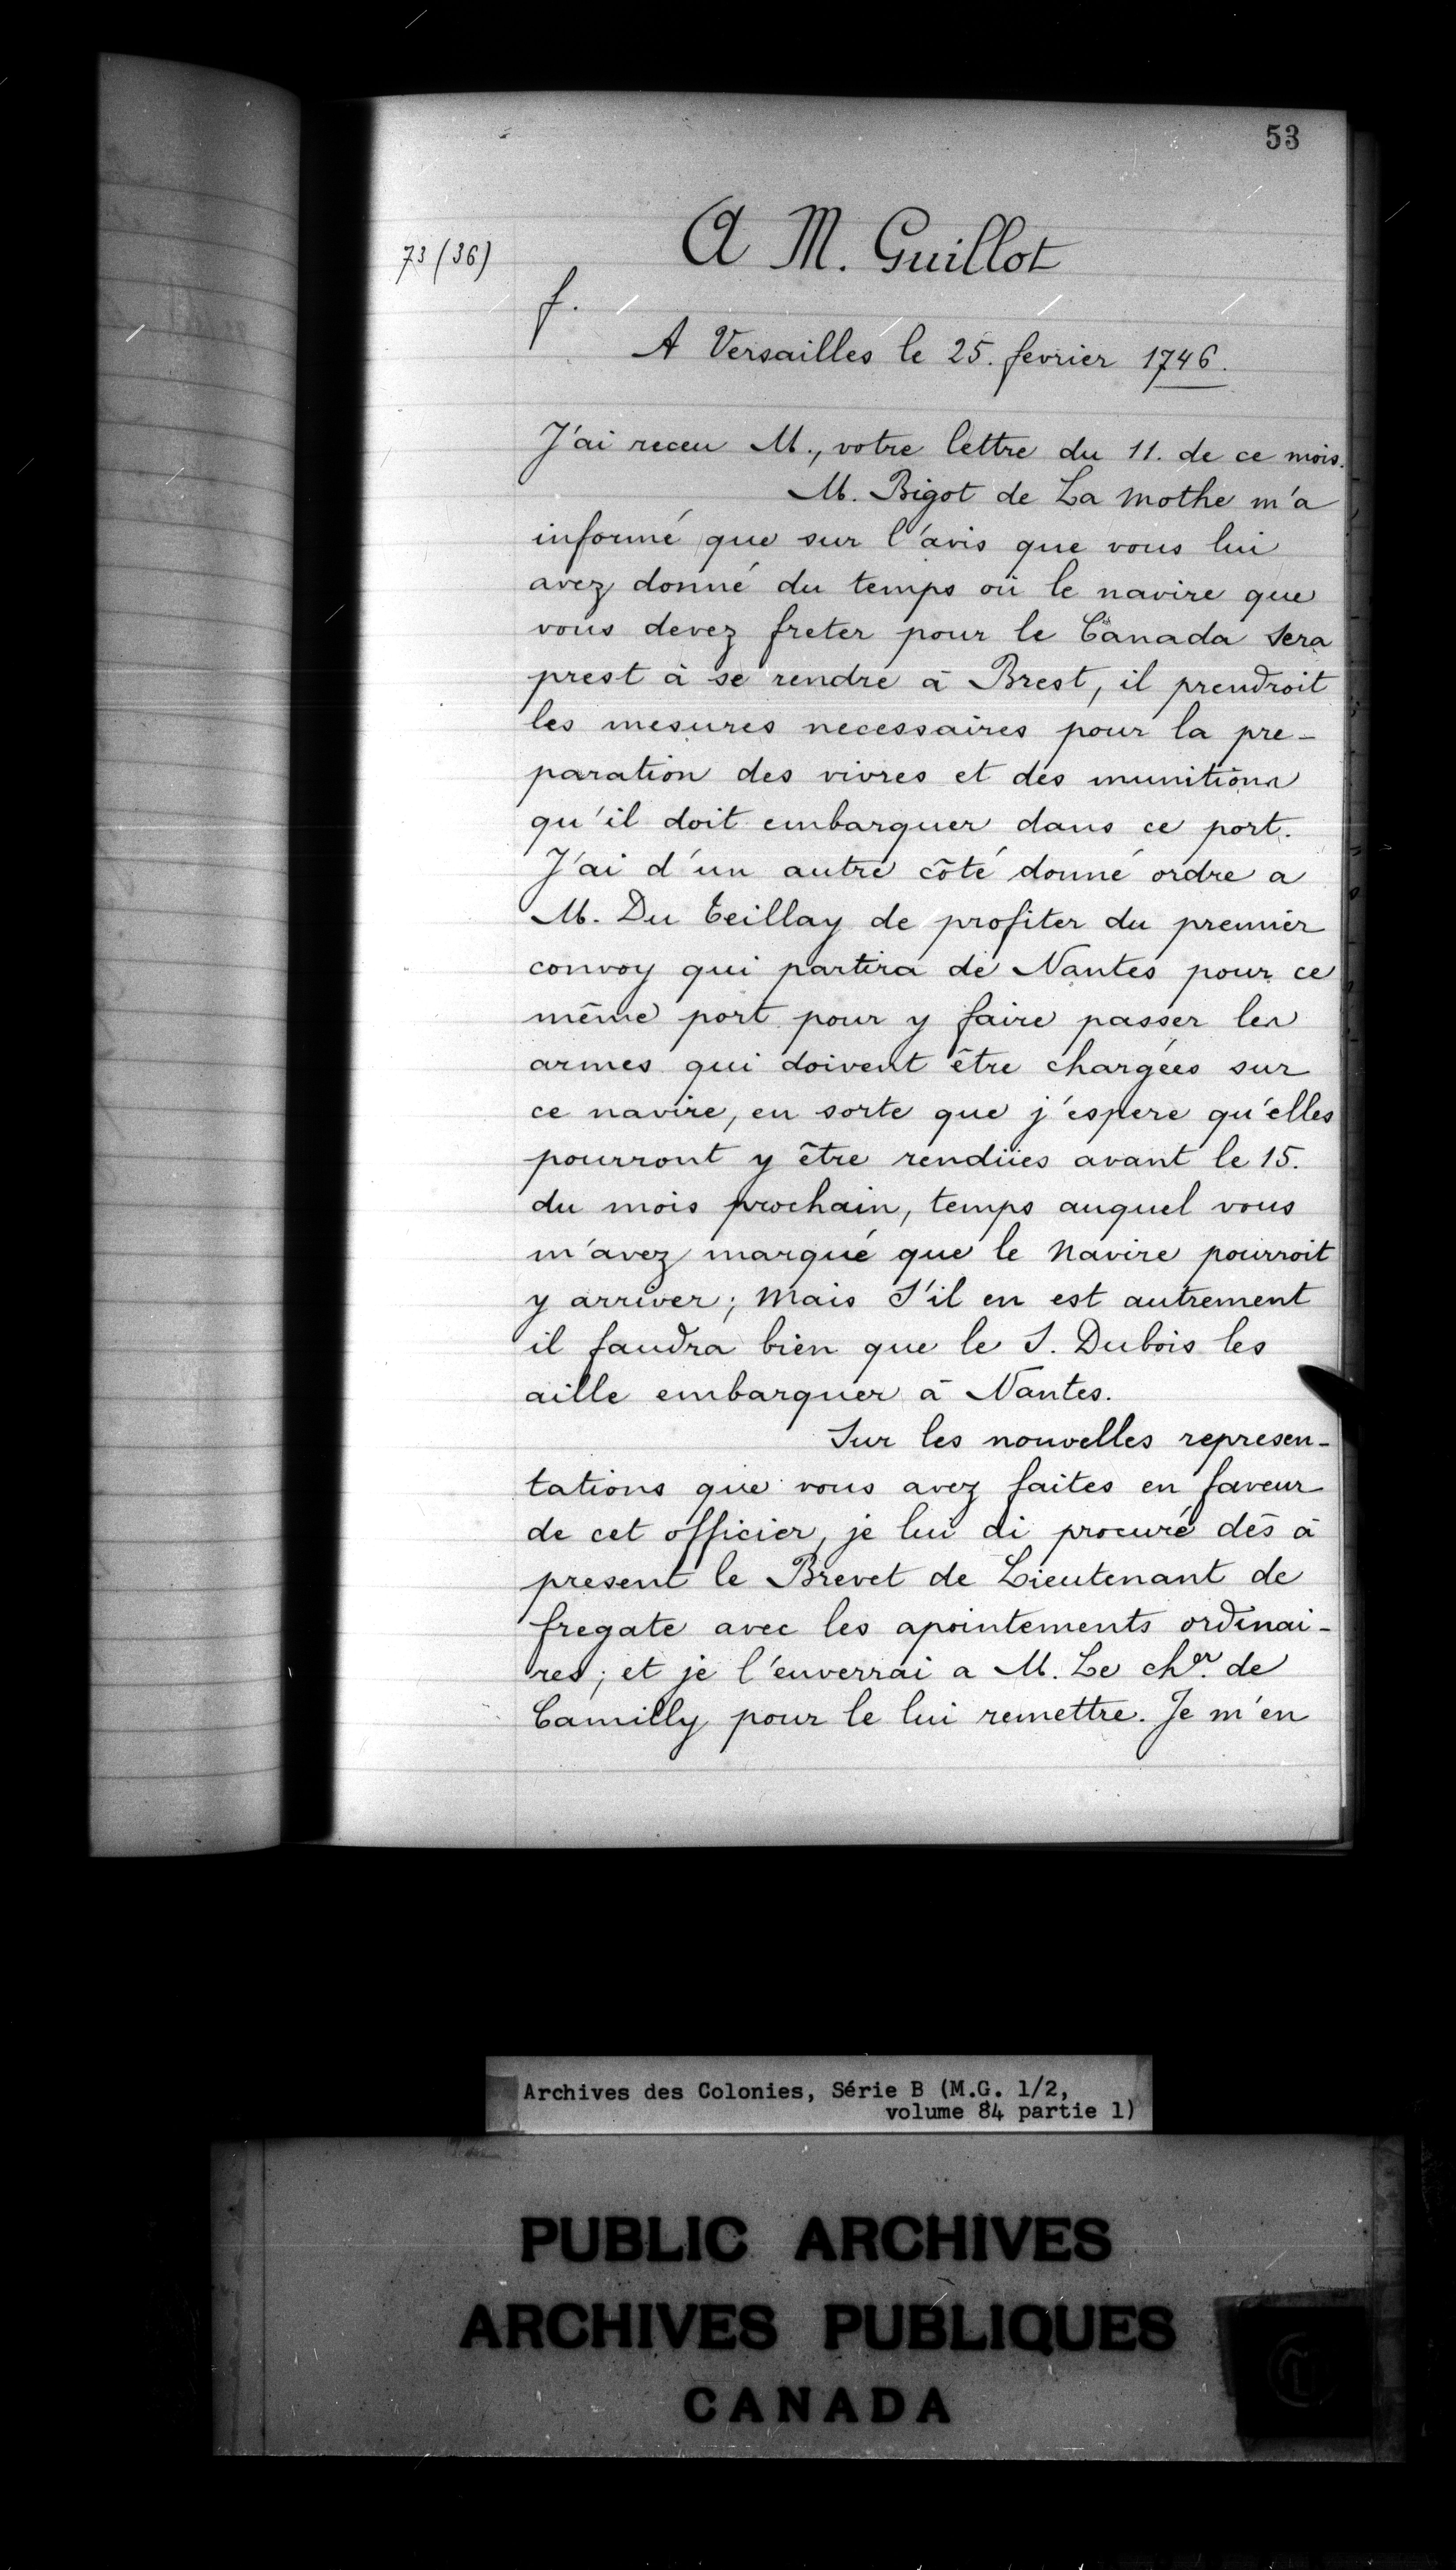 53
73 (36)
A M. Guillot
f.
A Versailles le 25. fevrier 1746.
J'ai receu M., votre lettre du 11. de ce mois.
M. Bigot de La Mothe m'a
informé que sur l'avis que vous lui
avez donné du temps où le navire que
vous devez freter pour le Canada sera
prest à se rendre à Brest, il prendroit
les mesures necessaires pour la pre-
paration des vivres et des munitions
qu'il doit embarquer dans ce port.
J'ai d'un autre côté donné ordre a
M. Du Teillay de profiter du premier
convoy qui partira de Nantes pour ce
même port pour y faire passer les
armes qui doivent être chargées sur
ce navire, en sorte que j'espere qu'elles
pourront y être rendües avant le 15.
du mois prochain, temps auquel vous
m'avez marqué que le Navire pourroit
y arriver; Mais S'il en est autrement
il faudra bien que le S. Dubois les
aille embarquer à Nantes.
Sur les nouvelles represen-
tations que vous avez faites en faveur
de cet officier, je lui ai procuré dés à
present le Brevet de Lieutenant de
fregate avec les apointements ordinai-
res; et je l'enverrai a M. Le cher. de
Camilly pour le lui remettre. Je m'en
Archives des Colonies, Série B (M.G. 1/2,
volume 84 partie 1)
PUBLIC ARCHIVES
ARCHIVES PUBLIQUES
CANADA